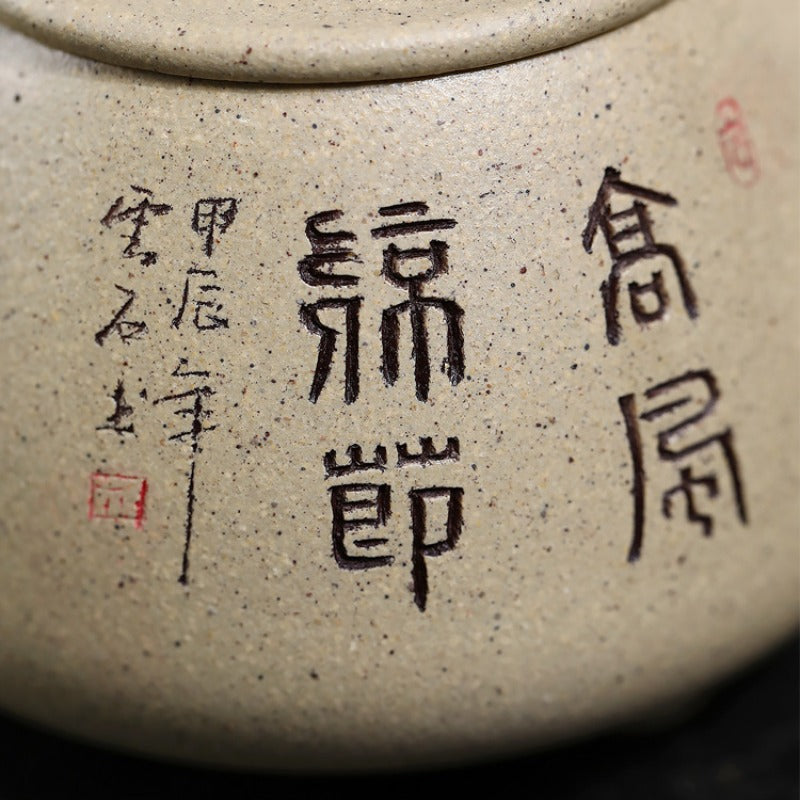 高風
節
甲辰年
雲石书